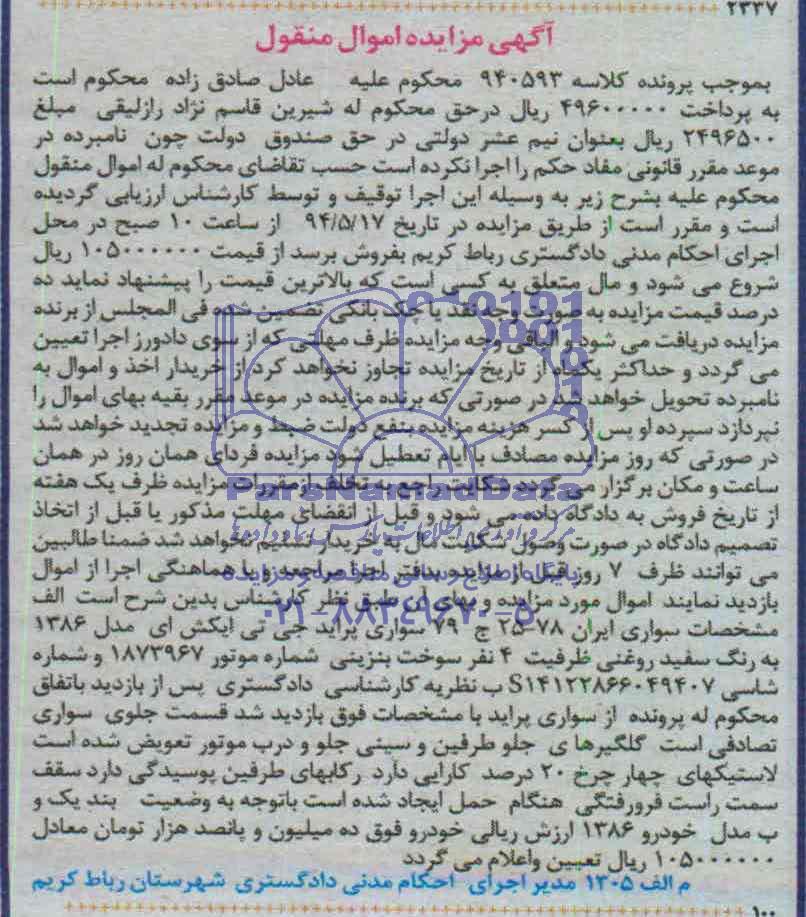 ۲۳۳۷
آگهی مزایده اموال منقول
بموجب پرونده کلاسه ۹۴۰۵۹۳ محکوم علیه عادل صادق زاده محکوم است
به پرداخت ۴۹۶۰۰۰۰۰ ریال درحق محکوم له شیرین قاسم نژاد رازلیقی مبلغ
۲۴۹۶۵۰۰ ریال بعنوان نیم عشر دولتی در حق صندوق دولت چون نامبرده در
موعد مقرر قانونی مفاد حکم را اجرا نکرده است حسب تقاضای محکوم له اموال منقول
محکوم علیه بشرح زیر به وسیله این اجرا توقیف و توسط کارشناس ارزیابی گردیده
است و مقرر است از طریق مزایده در تاریخ ۹۴/۵/۱۷ از ساعت ۱۰ صبح در محل
اجرای احکام مدنی دادگستری رباط کریم بفروش برسد از قیمت ۱۰۵۰۰۰۰۰۰ ریال
شروع می شود و مال متعلق به کسی است که بالاترین قیمت را پیشنهاد نماید ده
درصد قیمت مزایده به صورت وجه نقد یا چک بانکی تضمین شده فی المجلس از برنده
مزایده دریافت می شود و الباقی وجه مزایده ظرف مهلتی که از سوی دادورز اجرا تعیین
می گردد و حداکثر یکماه از تاریخ مزایده تجاوز نخواهد کرد از خریدار اخذ و اموال به
نامبرده تحویل خواهد شد در صورتی که برنده مزایده در موعد مقرر بقیه بهای اموال را
نپردازد سپرده او پس از کسر هزینه مزایده بنفع دولت ضبط و مزایده تجدید خواهد شد
در صورتی که روز مزایده مصادف با ایام تعطیل شود مزایده فردای همان روز در همان
ساعت و مکان برگزار می گردد شکایت راجع به تخلف از مقررات مزایده ظرف یک هفته
از تاریخ فروش به دادگاه داده می شود و قبل از انقضای مهلت مذکور یا قبل از اتخاذ
تصمیم دادگاه در صورت وصول شکایت مال به خریدار تسلیم نخواهد شد ضمنا طالبین
می توانند ظرف ۷ روز قبل از مزایده بدفتر اجرا مراجعه و با هماهنگی اجرا از اموال
بازدید نمایند اموال مورد مزایده و بهای آن طبق نظر کارشناس بدین شرح است الف
مشخصات سواری ایران ۷۸-۲۵ ج ۷۹ سواری پراید جی تی ایکش ای مدل ۱۳۸۶
به رنگ سفید روغنی ظرفیت ۴ نفر سوخت بنزینی شماره موتور ۱۸۷۳۹۶۷ و شماره
شاسی S۱۴۱۲۲۸۶۶۰۴۹۴۰۷ ب نظریه کارشناسی دادگستری پس از بازدید باتفاق
محکوم له پرونده از سواری پراید با مشخصات فوق بازدید شد قسمت جلوی سواری
تصادفی است گلگیرها ی جلو طرفین و سینی جلو و درب موتور تعویض شده است
لاستیکهای چهار چرخ ۲۰ درصد کارایی دارد رکابهای طرفین پوسیدگی دارد سقف
سمت راست فرورفتگی هنگام حمل ایجاد شده است باتوجه به وضعیت بند یک و
ب مدل خودرو ۱۳۸۶ ارزش ریالی خودرو فوق ده میلیون و پانصد هزار تومان معادل
۱۰۵۰۰۰۰۰۰ ریال تعیین واعلام می گردد
م الف ۱۳۰۵ مدیر اجرای احکام مدنی دادگستری شهرستان رباط کریم
۱۰۰
ParsNamadData
۰۲۱-۸۸۳۴۹۶۷۰-۵